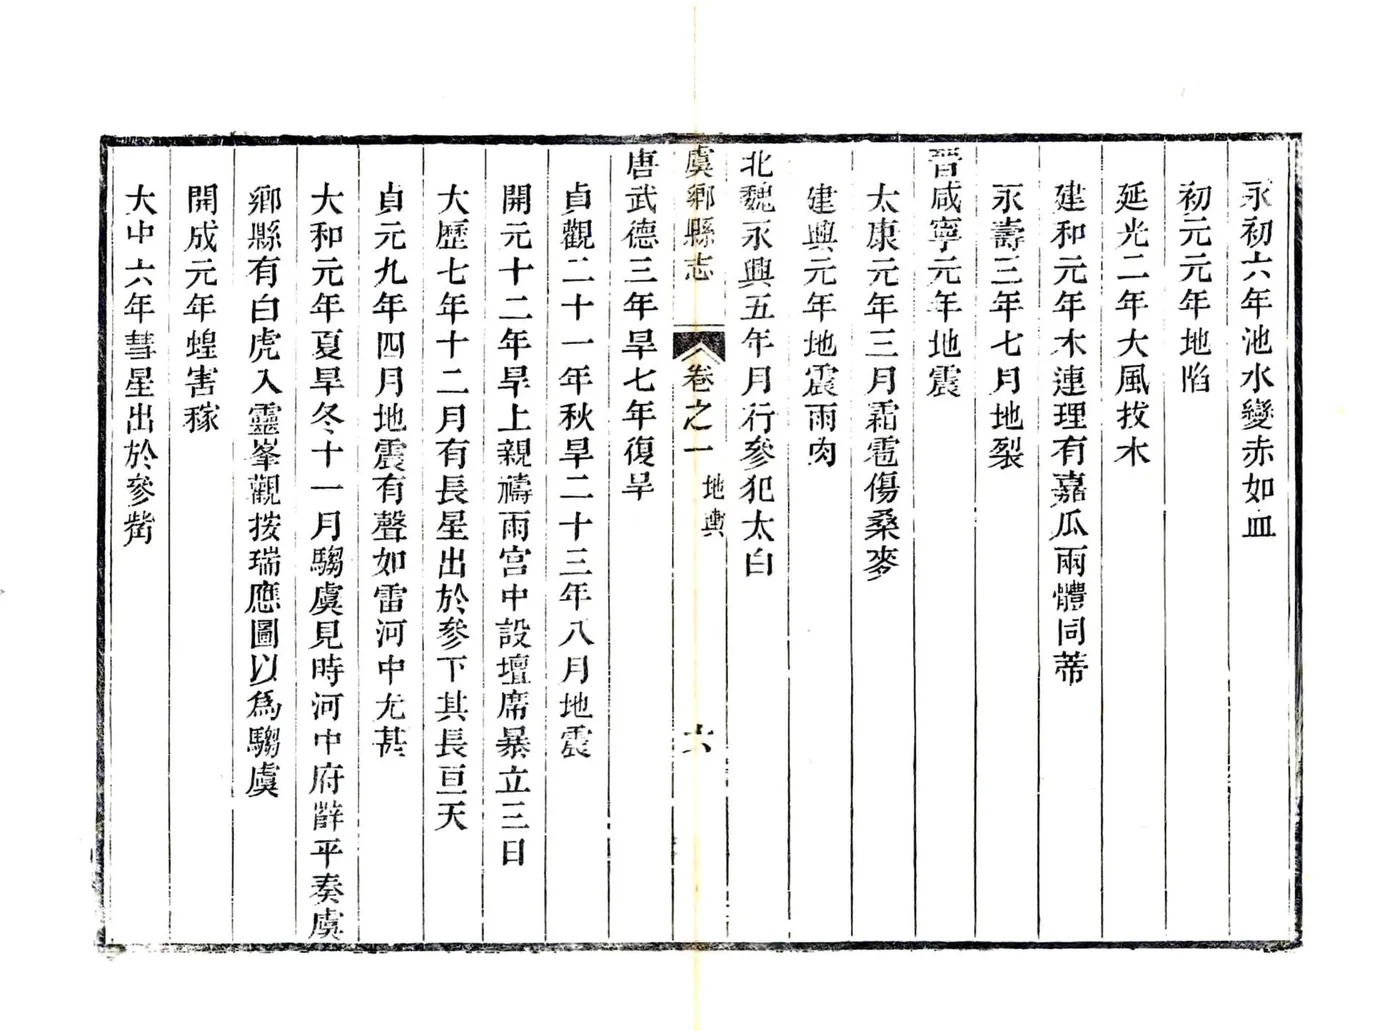 永初六年池水變赤如血
初元元年地陷
延光二年大風拔木
建和元年木連理有嘉瓜兩體同蒂
永壽三年七月地裂
晉咸寧元年地震
太康元年三月霜雹傷桑麥
建興元年地震雨肉
北魏永興五年月行參犯太白
虞鄉縣志 卷之一 地輿 六
唐武德三年旱七年復旱
貞觀二十一年秋旱二十三年八月地震
開元十二年旱上親禱雨宮中設壇席暴立三日
大歷七年十二月有長星出於參下其長亘天
貞元九年四月地震有聲如雷河中尤甚
大和元年夏旱冬十一月騶虞見時河中府薛平奏虞
鄉縣有白虎入靈峯觀按瑞應圖以爲騶虞
開成元年蝗害稼
大中六年彗星出於參觜